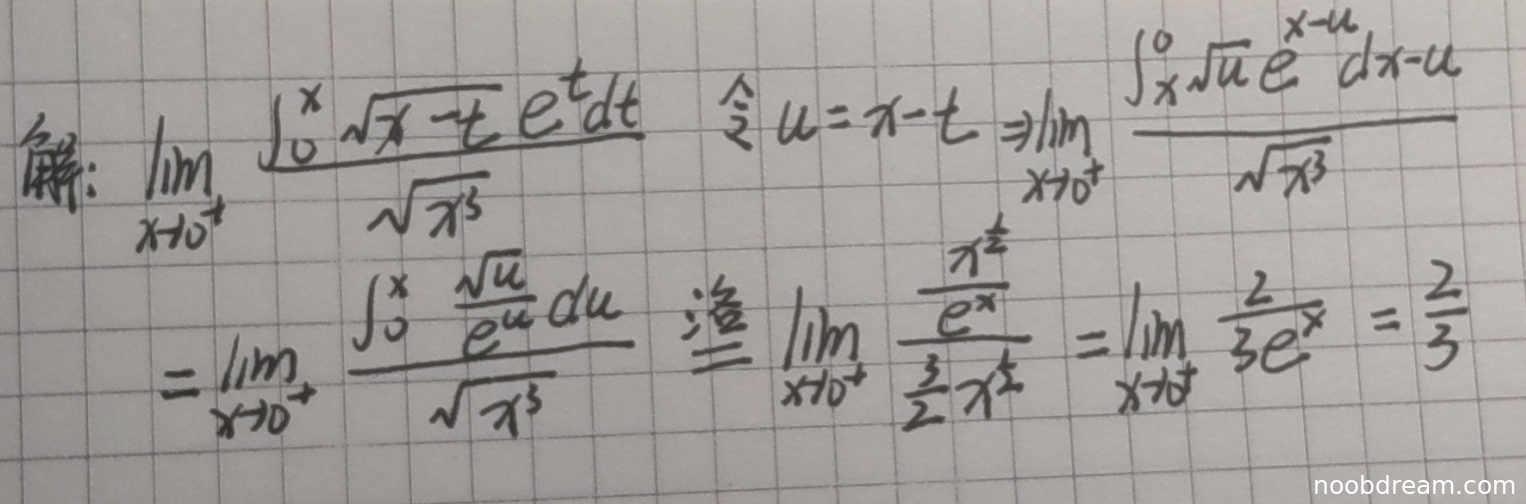 解: lim_{x→0⁺} \frac{∫_0^x √(x-t) e^t dt}{√(x³)} 令 u = x-t ⇒ lim_{x→0⁺} \frac{∫_x^0 √u e^{x-u} dx-u}{√(x³)}
= lim_{x→0⁺} \frac{∫_0^x \frac{√u}{e^u} du}{√(x³)} 洛 = lim_{x→0⁺} \frac{\frac{x^{1/2}}{e^x}}{\frac{3}{2} x^{1/2}} = lim_{x→0⁺} \frac{2}{3e^x} = \frac{2}{3}
noobdream.com